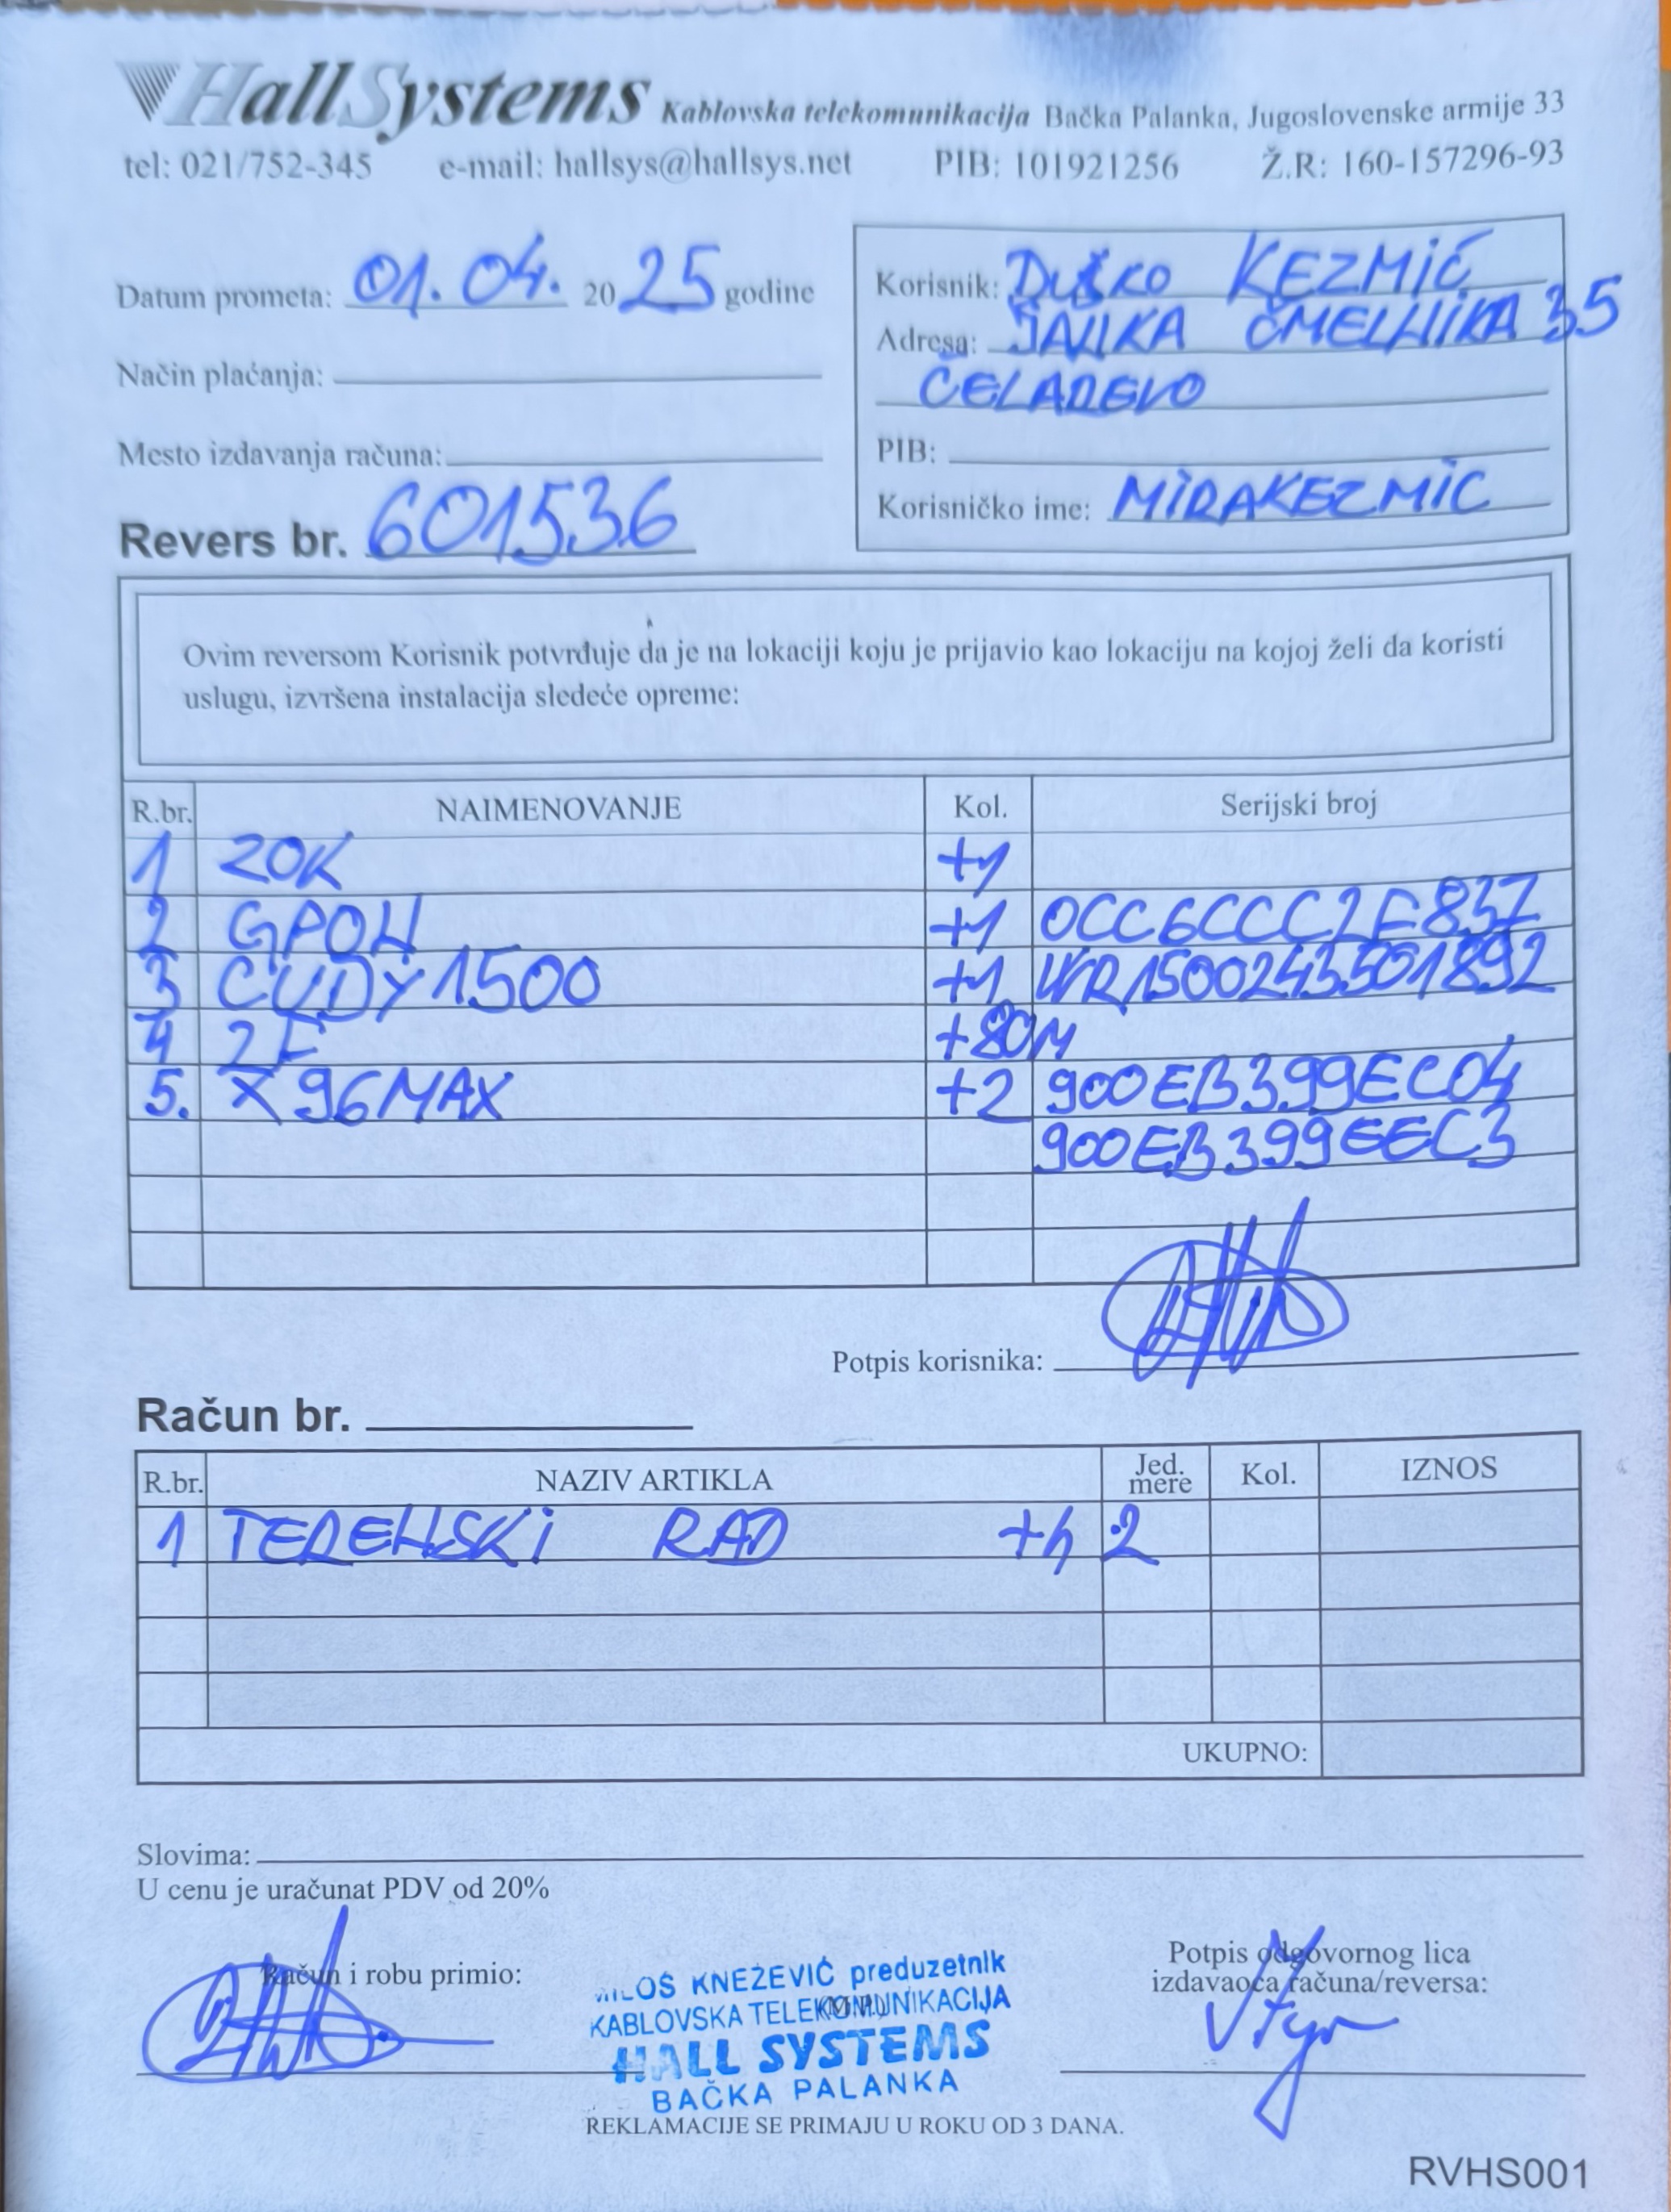 HallSystems Kablovska telekomunikacija Bačka Palanka, Jugoslovenske armije 33
tel: 021/752-345 e-mail: hallsys@hallsys.net PIB: 101921256 Ž.R: 160-157296-93
Datum prometa: 01.04. 2025 godine
Način plaćanja:
Mesto izdavanja računa:
Revers br. 601536
Korisnik: DUŠKO KEZMIĆ
Adresa: JANKA ČMELNIKA 35
ČELAREVO
PIB:
Korisničko ime: MIRAKEZMIC
Ovim reversom Korisnik potvrđuje da je na lokaciji koju je prijavio kao lokaciju na kojoj želi da koristi
uslugu, izvršena instalacija sledeće opreme:
R.br. NAIMENOVANJE Kol. Serijski broj
1 ZOK +1
2 GPON +1 0CC6CCC2F837
3 CUDY 1500 +1 WR1500243501892
4 2F +80M
5. X96MAX +2 900EB399EC04
900EB399EEC3
Potpis korisnika:
Račun br.
R.br. NAZIV ARTIKLA Jed. mere Kol. IZNOS
1 TERENSKI RAD +h 2
UKUPNO:
Slovima:
U cenu je uračunat PDV od 20%
Račun i robu primio:
MILOŠ KNEŽEVIĆ preduzetnik
KABLOVSKA TELEKOMUNIKACIJA
(M.P.)
HALL SYSTEMS
BAČKA PALANKA
Potpis odgovornog lica
izdavaoca računa/reversa:
REKLAMACIJE SE PRIMAJU U ROKU OD 3 DANA.
RVHS001